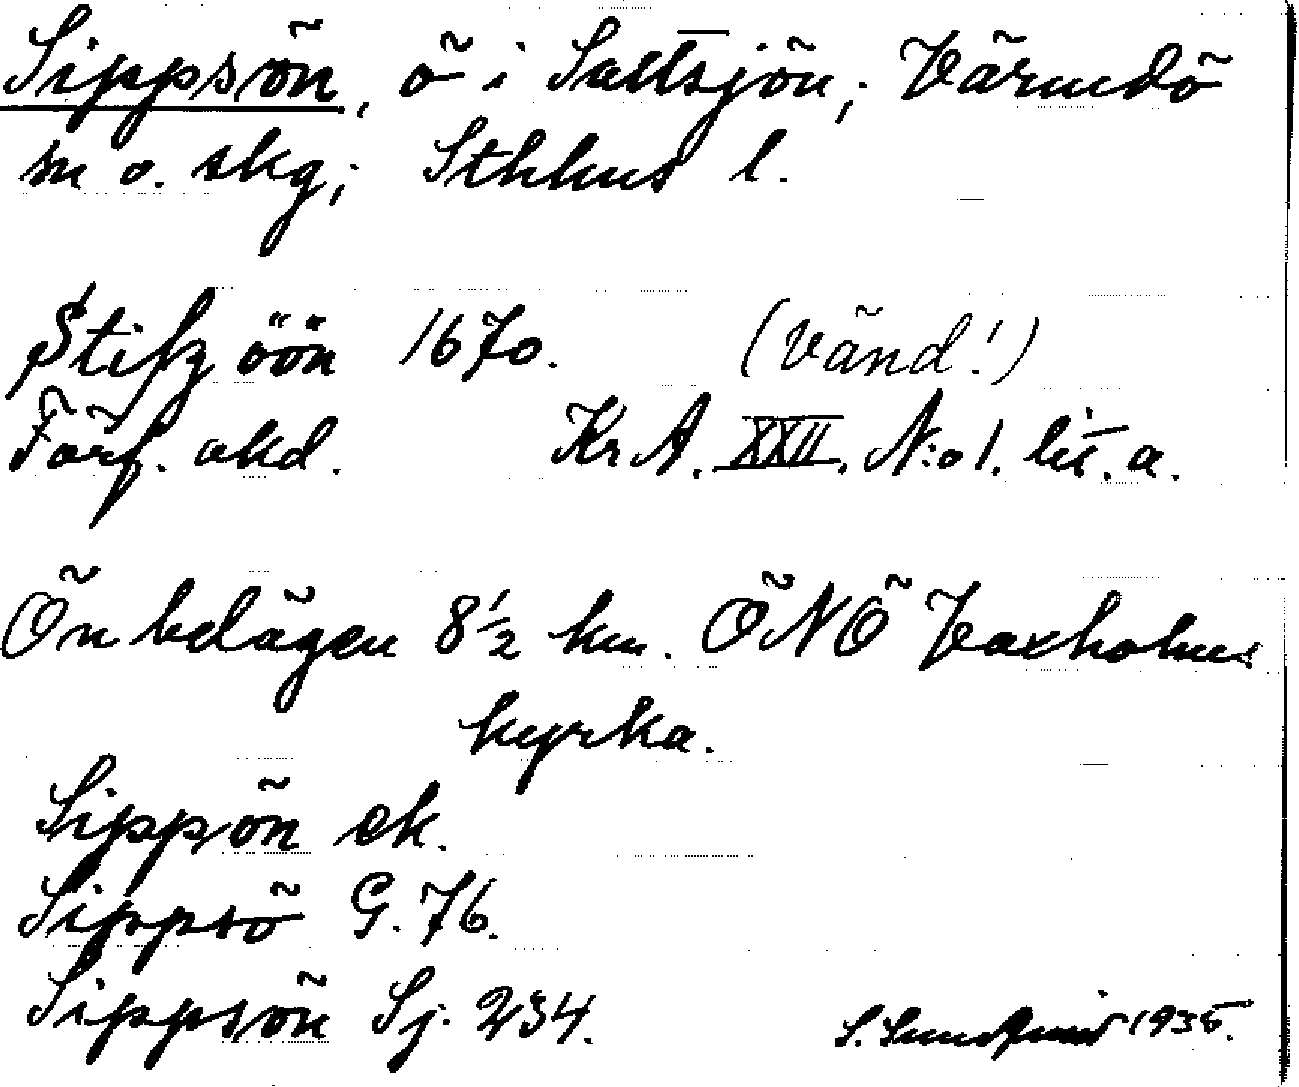 Sippsön, ö i Saltsjön; Värmdö
sn o. skg; Sthlms l.
Stifzöön 1670. (Vänd!)
Förf. okd. KrA. XXII. N:o 1. lit. a.
Ön belägen 8½ km. ÖNÖ Vaxholms
kyrka.
Sippön ek.
Sippsö G. 76.
Sippsön Sj. 234.
S. Sundquist 1935.